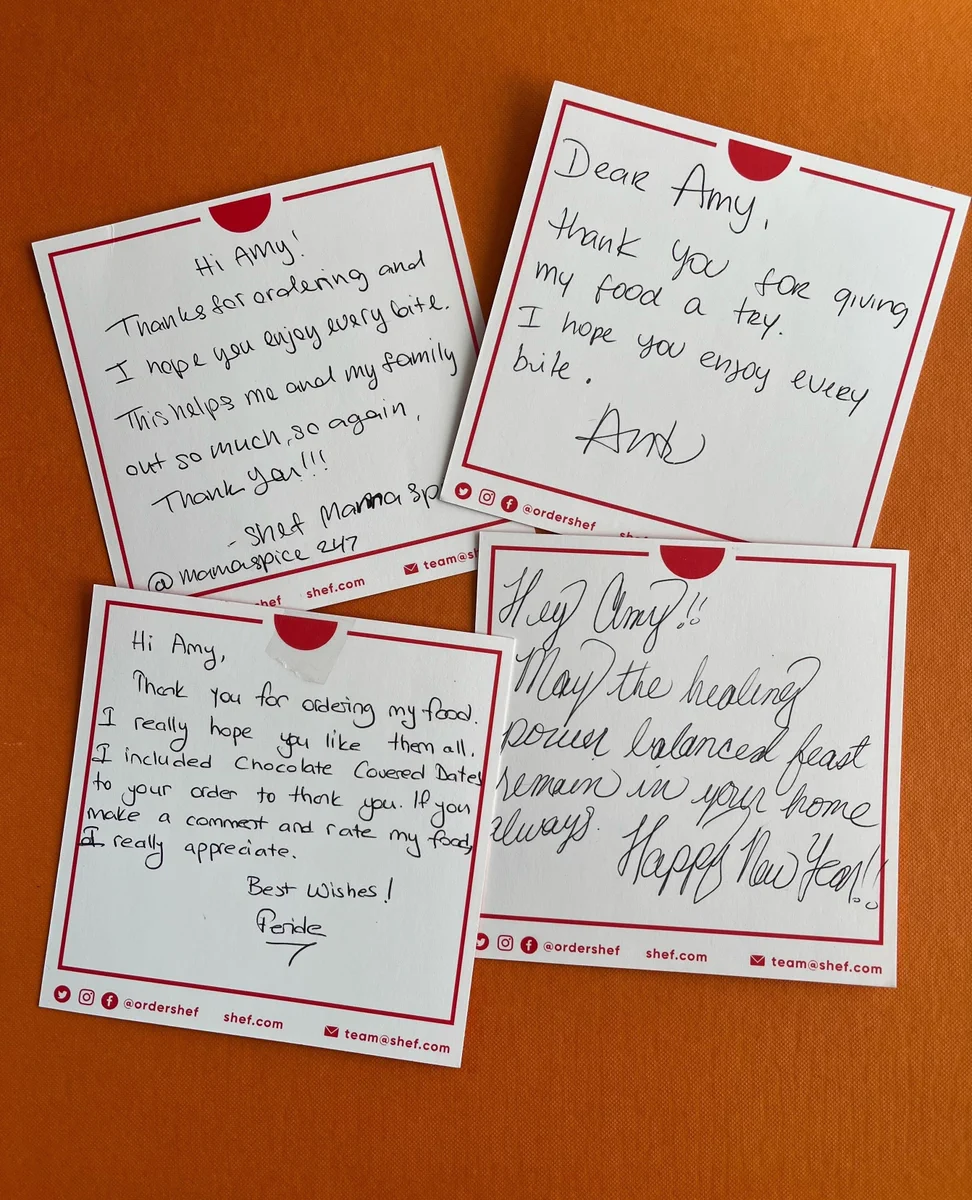 Hi Amy!
Thanks for ordering and
I hope you enjoy every bite.
This helps me and my family
out so much, so again,
Thank you!!!
- Shef Mama Sp
@mamaspice247
shef
shef.com
team@sh
Dear Amy,
thank you for giving
my food a try.
I hope you enjoy every
bite.
@ordershef
shef
Hi Amy,
Thank you for ordering my food.
I really hope you like them all.
I included Chocolate Covered Dates
to your order to thank you. If you
make a comment and rate my food,
I really appreciate.
Best Wishes!
Peride
@ordershef shef.com team@shef.com
Hey Amy!!
May the healing
power balanced feast
remain in your home
always.
Happy New Year!!
@ordershef shef.com team@shef.com